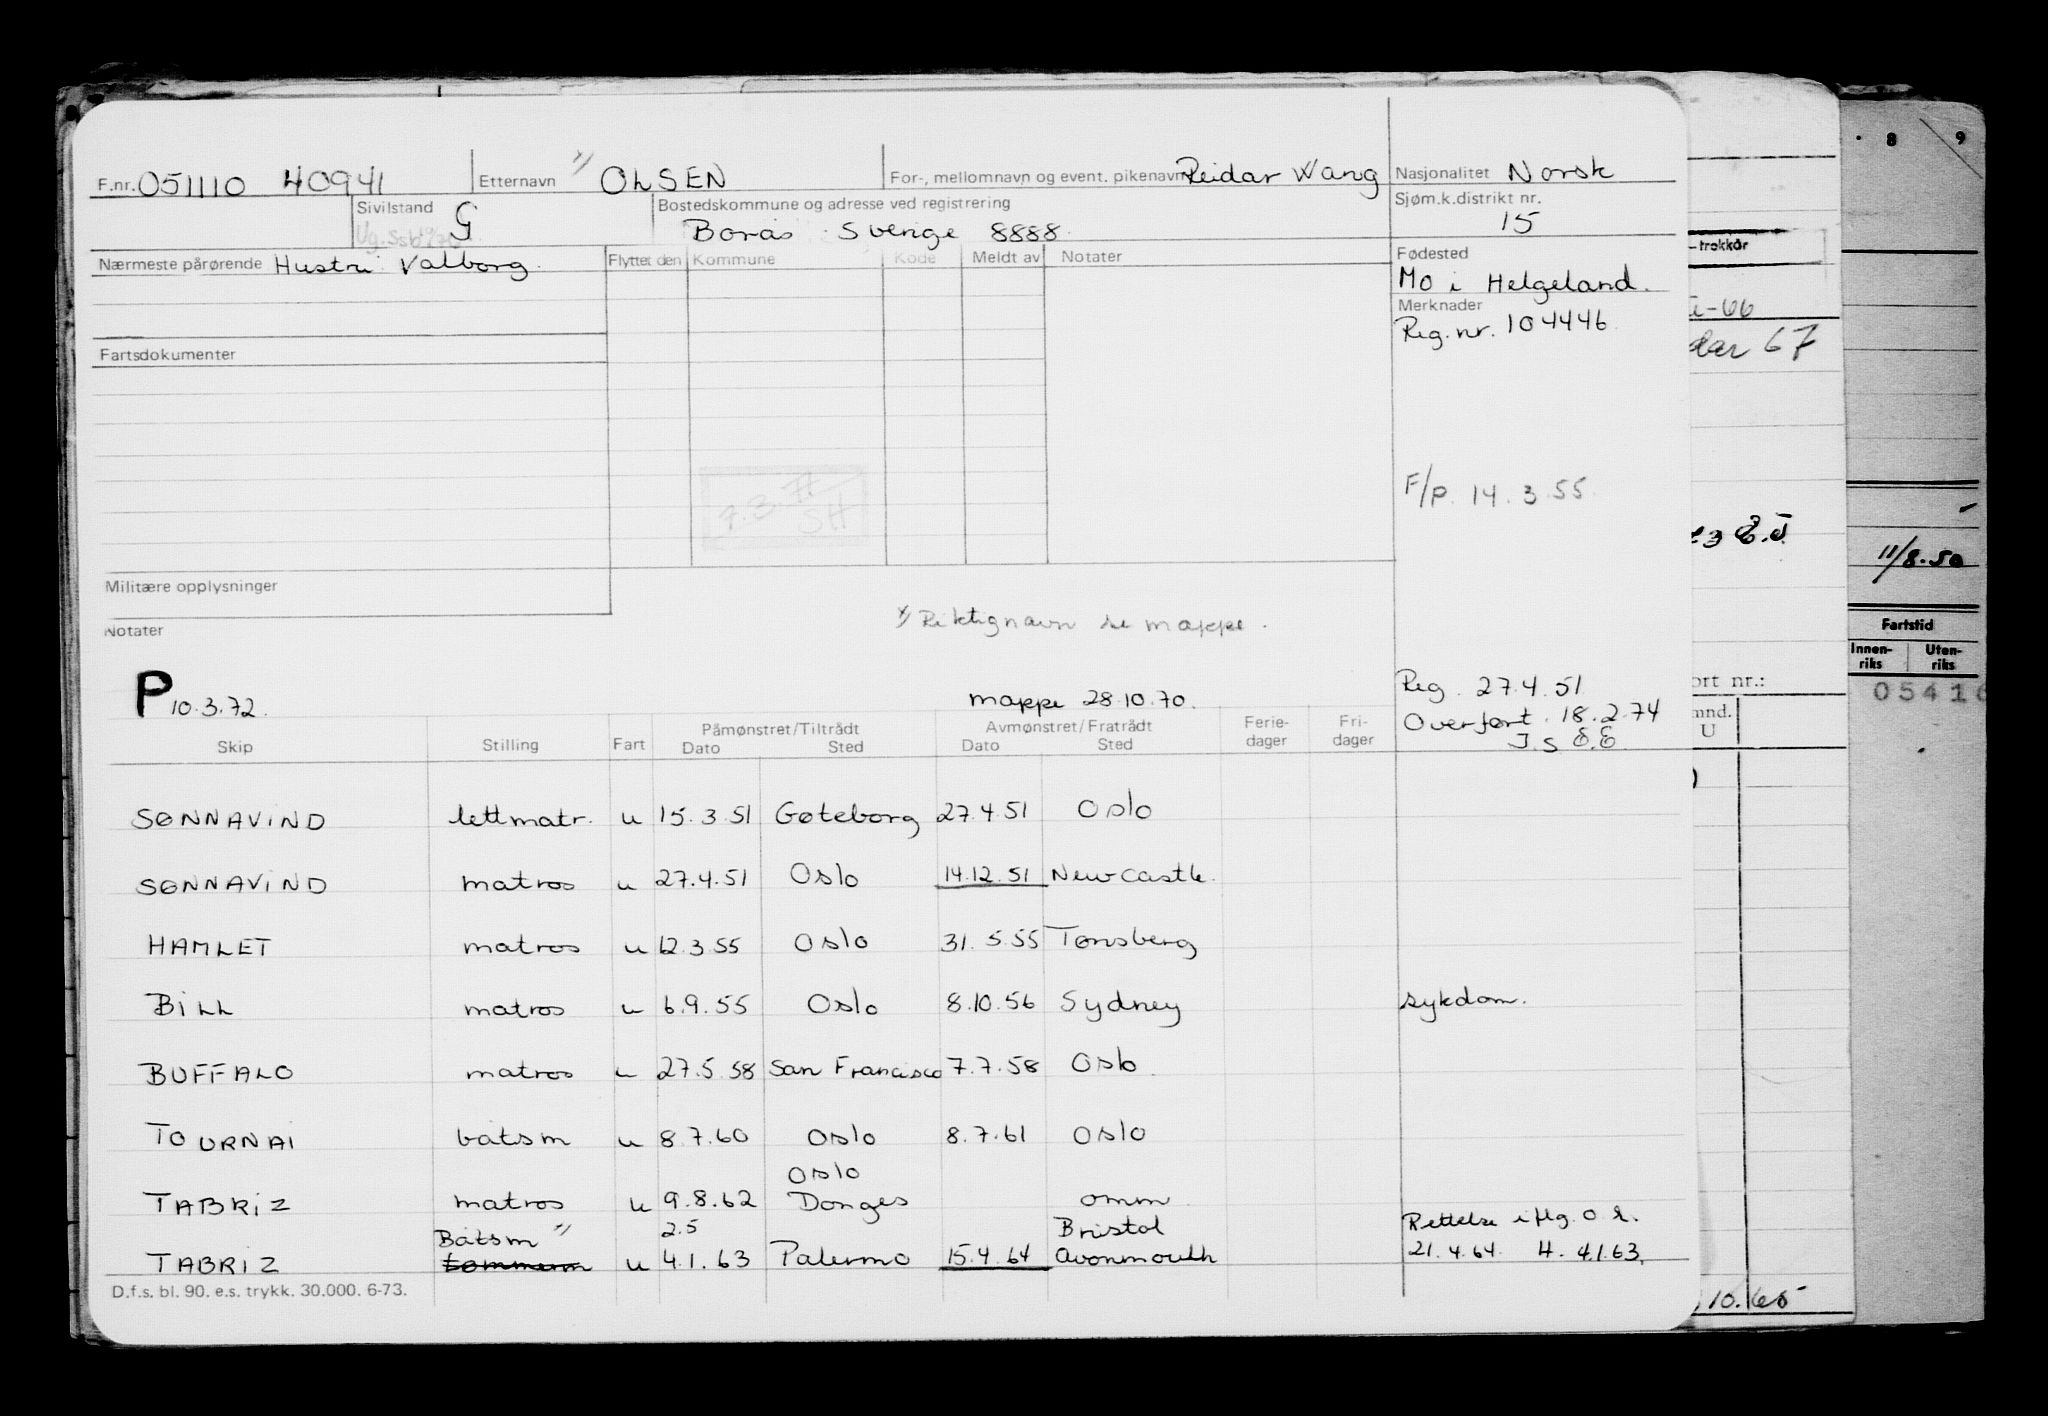 F.nr. 051110 40941 Etternavn 1) OLSEN For-, mellomnavn og event. pikenavn Reidar Wang Nasjonalitet Norsk
Sivilstand G Bostedskommune og adresse ved registrering Sjøm.k.distrikt nr.
Borås Sverige 8888 15
Nærmeste pårørende Hustru Valborg Flyttet den Kommune Kode Meldt av Notater Fødested
Mo i Helgeland.
Merknader
Reg.nr. 104446
Fartsdokumenter
F/P. 14.3.55
7.3.77
SH
Militære opplysninger
1) Riktig navn se mappe.
Notater
P 10.3.72. mappe 28.10.70. Reg. 27.4.51
Overført. 18.2.74
J.S E.E
Skip Stilling Fart Påmønstret/Tiltrådt Dato Sted Avmønstret/Fratrådt Dato Sted Ferie-dager Fri-dager
SØNNAVIND lettmatr. u 15.3.51 Gøteborg 27.4.51 Oslo
SØNNAVIND matros u 27.4.51 Oslo 14.12.51 Newcastle.
HAMLET matros u 12.3.55 Oslo 31.5.55 Tønsberg
BILL matros u 6.9.55 Oslo 8.10.56 Sydney sykdom.
BUFFALO matros u 27.5.58 San Francisco 7.7.58 Oslo.
TOURNAI båtsm u 8.7.60 Oslo 8.7.61 Oslo
Oslo
TABRIZ matros u 9.8.62 Donges omm
Båtsm 1) 2.5 Bristol Rettelse iflg. O.R.
TABRIZ tømmerm u 4.1.63 Palermo 15.4.64 Avonmouth 21.4.64. H. 4.1.63.
D.f.s. bl. 90. e.s. trykk. 30.000. 6-73.
8 9
-trekkår
-66
67
E.J.
11/8.50
Fartstid
Innen-riks Uten-riks
ort nr.:
mnd.
U
05416
10.65